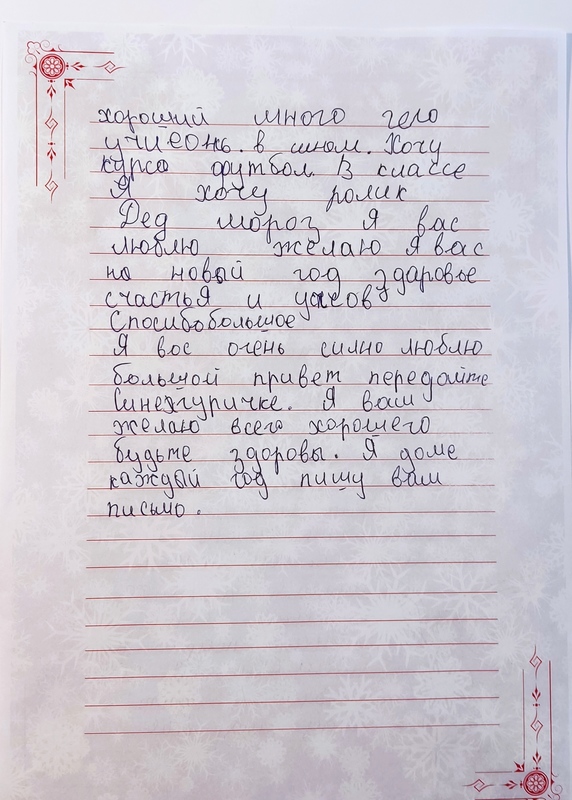 хороший много гело
учйеонь. в шном. Хочу
курсо футбол. В классе
Я хочу ролик
Дед мороз Я вас
люблю желаю Я вас
на новый год здаровье
счастья и
Способобольшое
Я вос очень силно люблю
большой привет передойте
Синехгуричке. Я вам
желаю всего хорошего
будьте здоровы. Я доме
каждый год пишу вам
письмо.